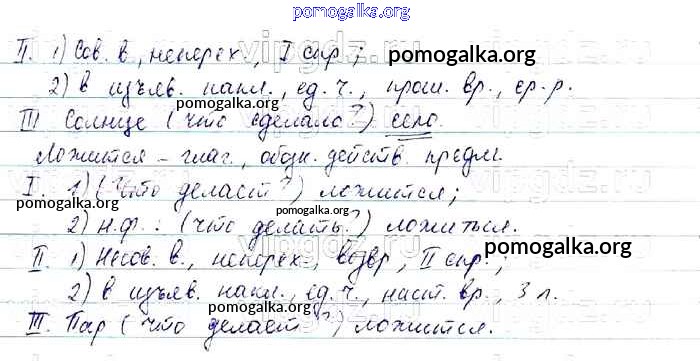 pomogalka.org
II. 1) Сов. в., неперех., I спр.;
pomogalka.org
2) в изъяв. накл., ед. ч., прош. вр., ср. р.
pomogalka.org
III Солнце (что сделало?) село.
Ложится – глаг., обозн. действ. предм.
I. 1) (Что делает?) ложится;
pomogalka.org
pomogalka.org
2) н.ф.: (что делать?) ложиться.
pomogalka.org
II. 1) Несов. в., неперех., возвр., II спр.;
2) в изъяв. накл., ед. ч., наст. вр., 3 л.
pomogalka.org
III. Пар (что делает?) ложится.